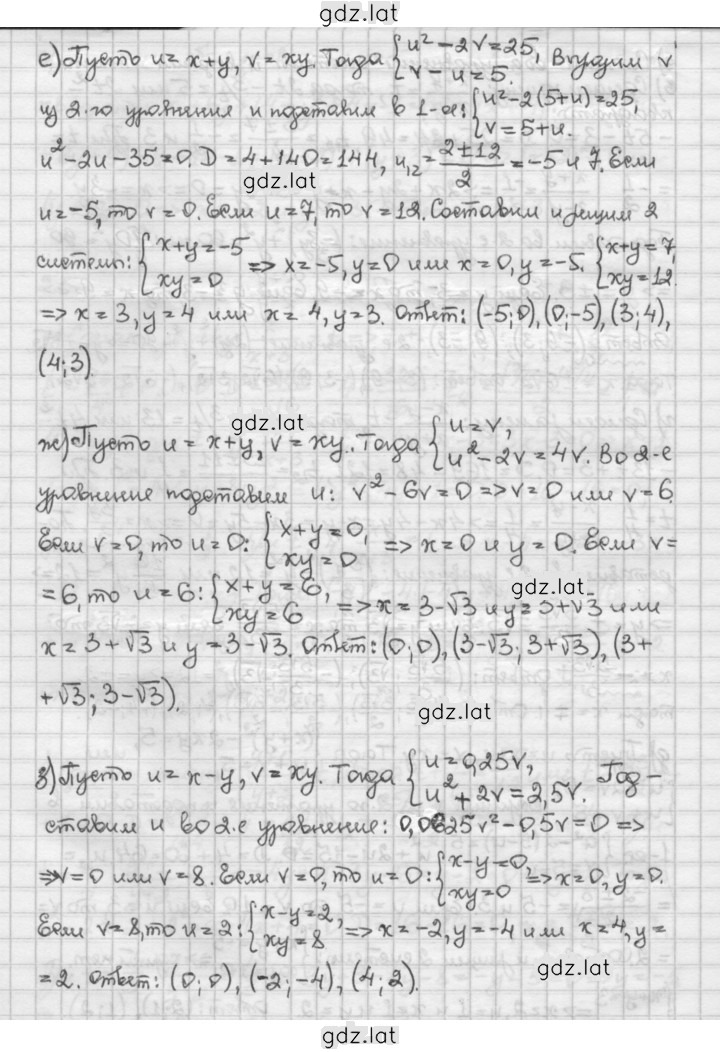 gdz.lat
е) Пусть u = x+y, v = xy. Тогда { u² - 2v = 25, v - u = 5. Выразим v
из 2-го уравнения и подставим в 1-ое: { u² - 2(5+u) = 25, v = 5+u.
u² - 2u - 35 = 0. D = 4+140 = 144, u₁₂ = (2±12)/2 = -5 и 7. Если
gdz.lat
u = -5, то v = 0. Если u = 7, то v = 12. Составим и решим 2
системы: { x+y = -5 xy = 0 => x = -5, y = 0 или x = 0, y = -5. { x+y = 7, xy = 12.
=> x = 3, y = 4 или x = 4, y = 3. Ответ: (-5; 0), (0; -5), (3; 4),
(4; 3).
gdz.lat
ж) Пусть u = x+y, v = xy. Тогда { u = v, u² - 2v = 4v. Во 2-е
уравнение подставим u: v² - 6v = 0 => v = 0 или v = 6.
Если v = 0, то u = 0: { x+y = 0, xy = 0 => x = 0 и y = 0. Если v =
= 6, то u = 6: { x+y = 6, xy = 6 => x = 3-√3 и y = 3+√3 или
gdz.lat
x = 3+√3 и y = 3-√3. Ответ: (0; 0), (3-√3; 3+√3), (3+
+√3; 3-√3).
gdz.lat
з) Пусть u = x-y, v = xy. Тогда { u = 0,25v, u² + 2v = 2,5v. Под-
ставим u во 2-е уравнение: 0,0625v² - 0,5v = 0 =>
=> v = 0 или v = 8. Если v = 0, то u = 0: { x-y = 0, xy = 0 => x = 0, y = 0.
Если v = 8, то u = 2: { x-y = 2, xy = 8 => x = -2, y = -4 или x = 4, y =
= 2. Ответ: (0; 0), (-2; -4), (4; 2).
gdz.lat
gdz.lat